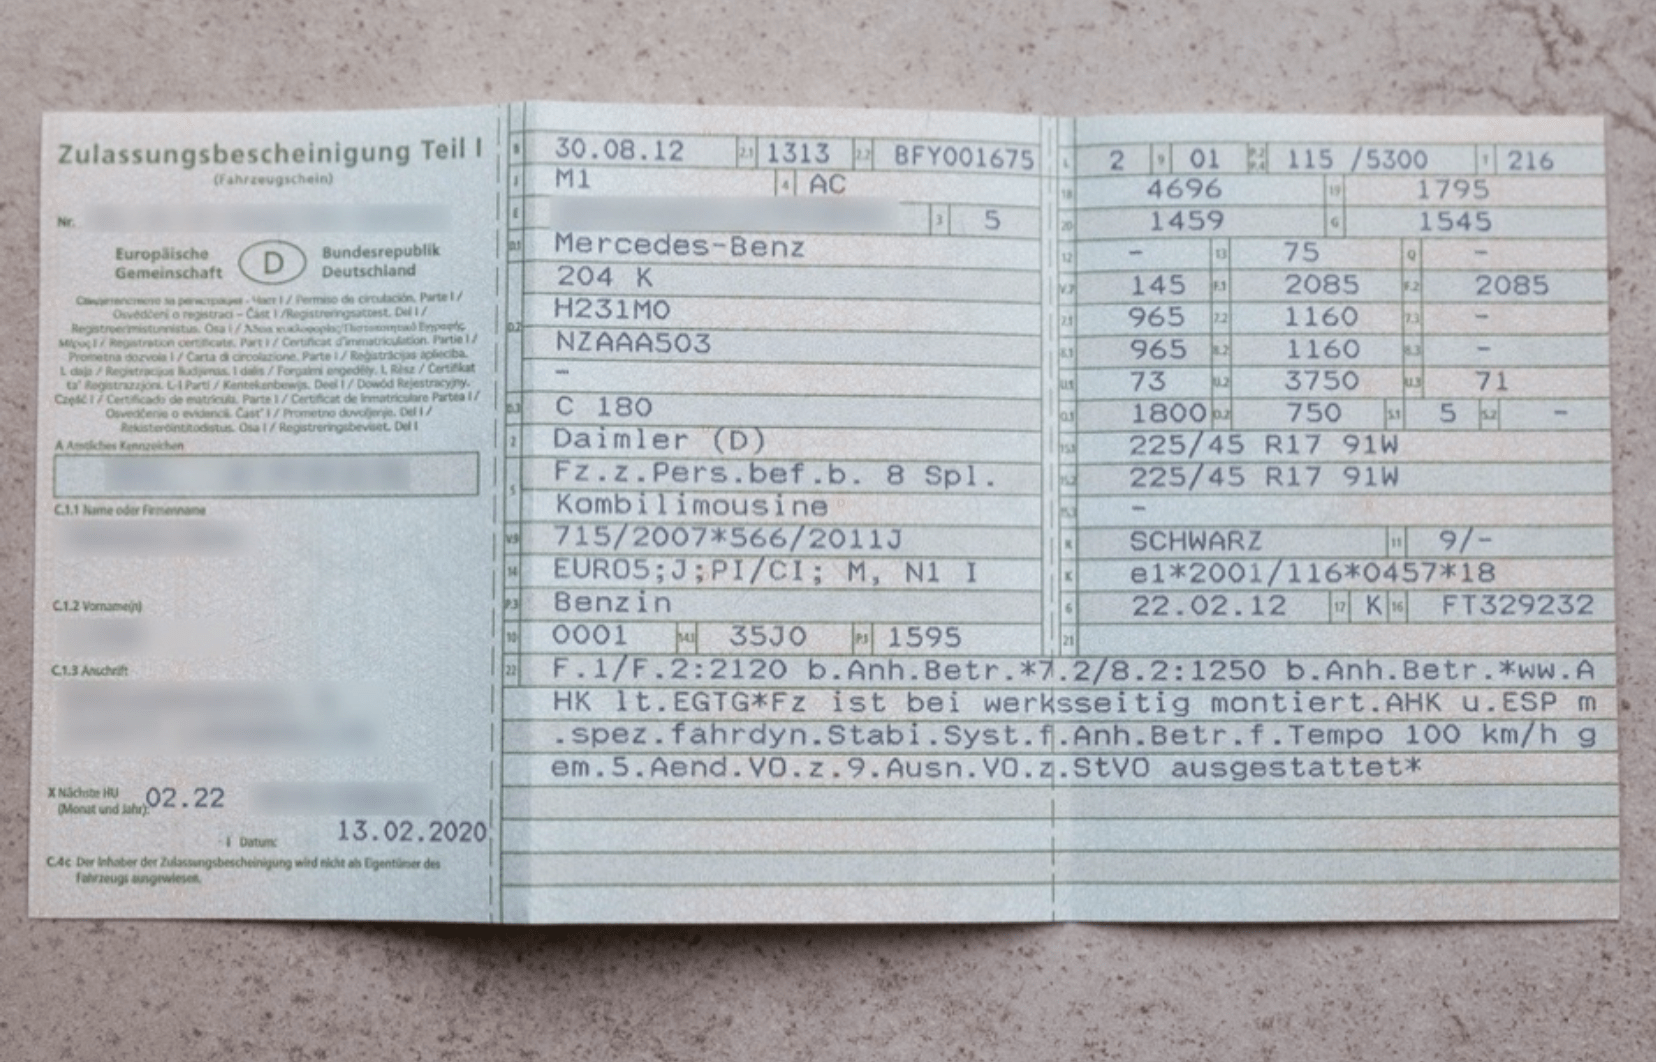 Zulassungsbescheinigung Teil I
(Fahrzeugschein)
Nr.
Europäische Gemeinschaft
D
Bundesrepublik Deutschland
/ Permiso de circulación. Parte I /
Osvědčení o registraci – Část I /Registreringsattest. Del I /
Registreerimistunnistus. Osa I /
/ Registration certificate. Part I / Certificat d'immatriculation. Partie I /
Prometna dozvola I / Carta di circolazione. Parte I / Reģistrācijas apliecība.
I. daļa / Registracijos liudijimas. I dalis / Forgalmi engedély. I. Rész / Ċertifikat
ta' Reġistrazzjoni. L-I Parti / Kentekenbewijs. Deel I / Dowód Rejestracyjny.
Część I / Certificado de matrícula. Parte I / Certificat de înmatriculare Partea I /
Osvedčenie o evidencii. Časť I / Prometno dovoljenje. Del I /
Rekisteröintitodistus. Osa I / Registreringsbeviset. Del I
A Amtliches Kennzeichen
C.1.1 Name oder Firmenname
C.1.2 Vorname(n)
C.1.3 Anschrift
X Nächste HU
(Monat und Jahr): 02.22
I Datum: 13.02.2020
C.4c Der Inhaber der Zulassungsbescheinigung wird nicht als Eigentümer des
Fahrzeugs ausgewiesen.
B 30.08.12 2.1 1313 2.2 BFY001675
J M1 4 AC
E 3 5
D.1 Mercedes-Benz
204 K
D.2 H231M0
NZAAA503
–
D.3 C 180
2 Daimler (D)
5 Fz.z.Pers.bef.b. 8 Spl.
Kombilimousine
V.9 715/2007*566/2011J
14 EURO5;J;PI/CI; M, N1 I
P.3 Benzin
10 0001 14.1 35J0 P.1 1595
L 2 9 01 P.2 P.4 115 /5300 T 216
18 4696 19 1795
20 1459 G 1545
12 – 13 75 Q –
V.7 145 F.1 2085 F.2 2085
7.1 965 7.2 1160 7.3 –
8.1 965 8.2 1160 8.3 –
U.1 73 U.2 3750 U.3 71
O.1 1800 O.2 750 S.1 5 S.2 –
15.1 225/45 R17 91W
15.2 225/45 R17 91W
15.3 –
R SCHWARZ 11 9/–
K e1*2001/116*0457*18
6 22.02.12 17 K 16 FT329232
21
22 F.1/F.2:2120 b.Anh.Betr.*7.2/8.2:1250 b.Anh.Betr.*ww.A
HK lt.EGTG*Fz ist bei werksseitig montiert.AHK u.ESP m
.spez.fahrdyn.Stabi.Syst.f.Anh.Betr.f.Tempo 100 km/h g
em.5.Aend.VO.z.9.Ausn.VO.z.StVO ausgestattet*